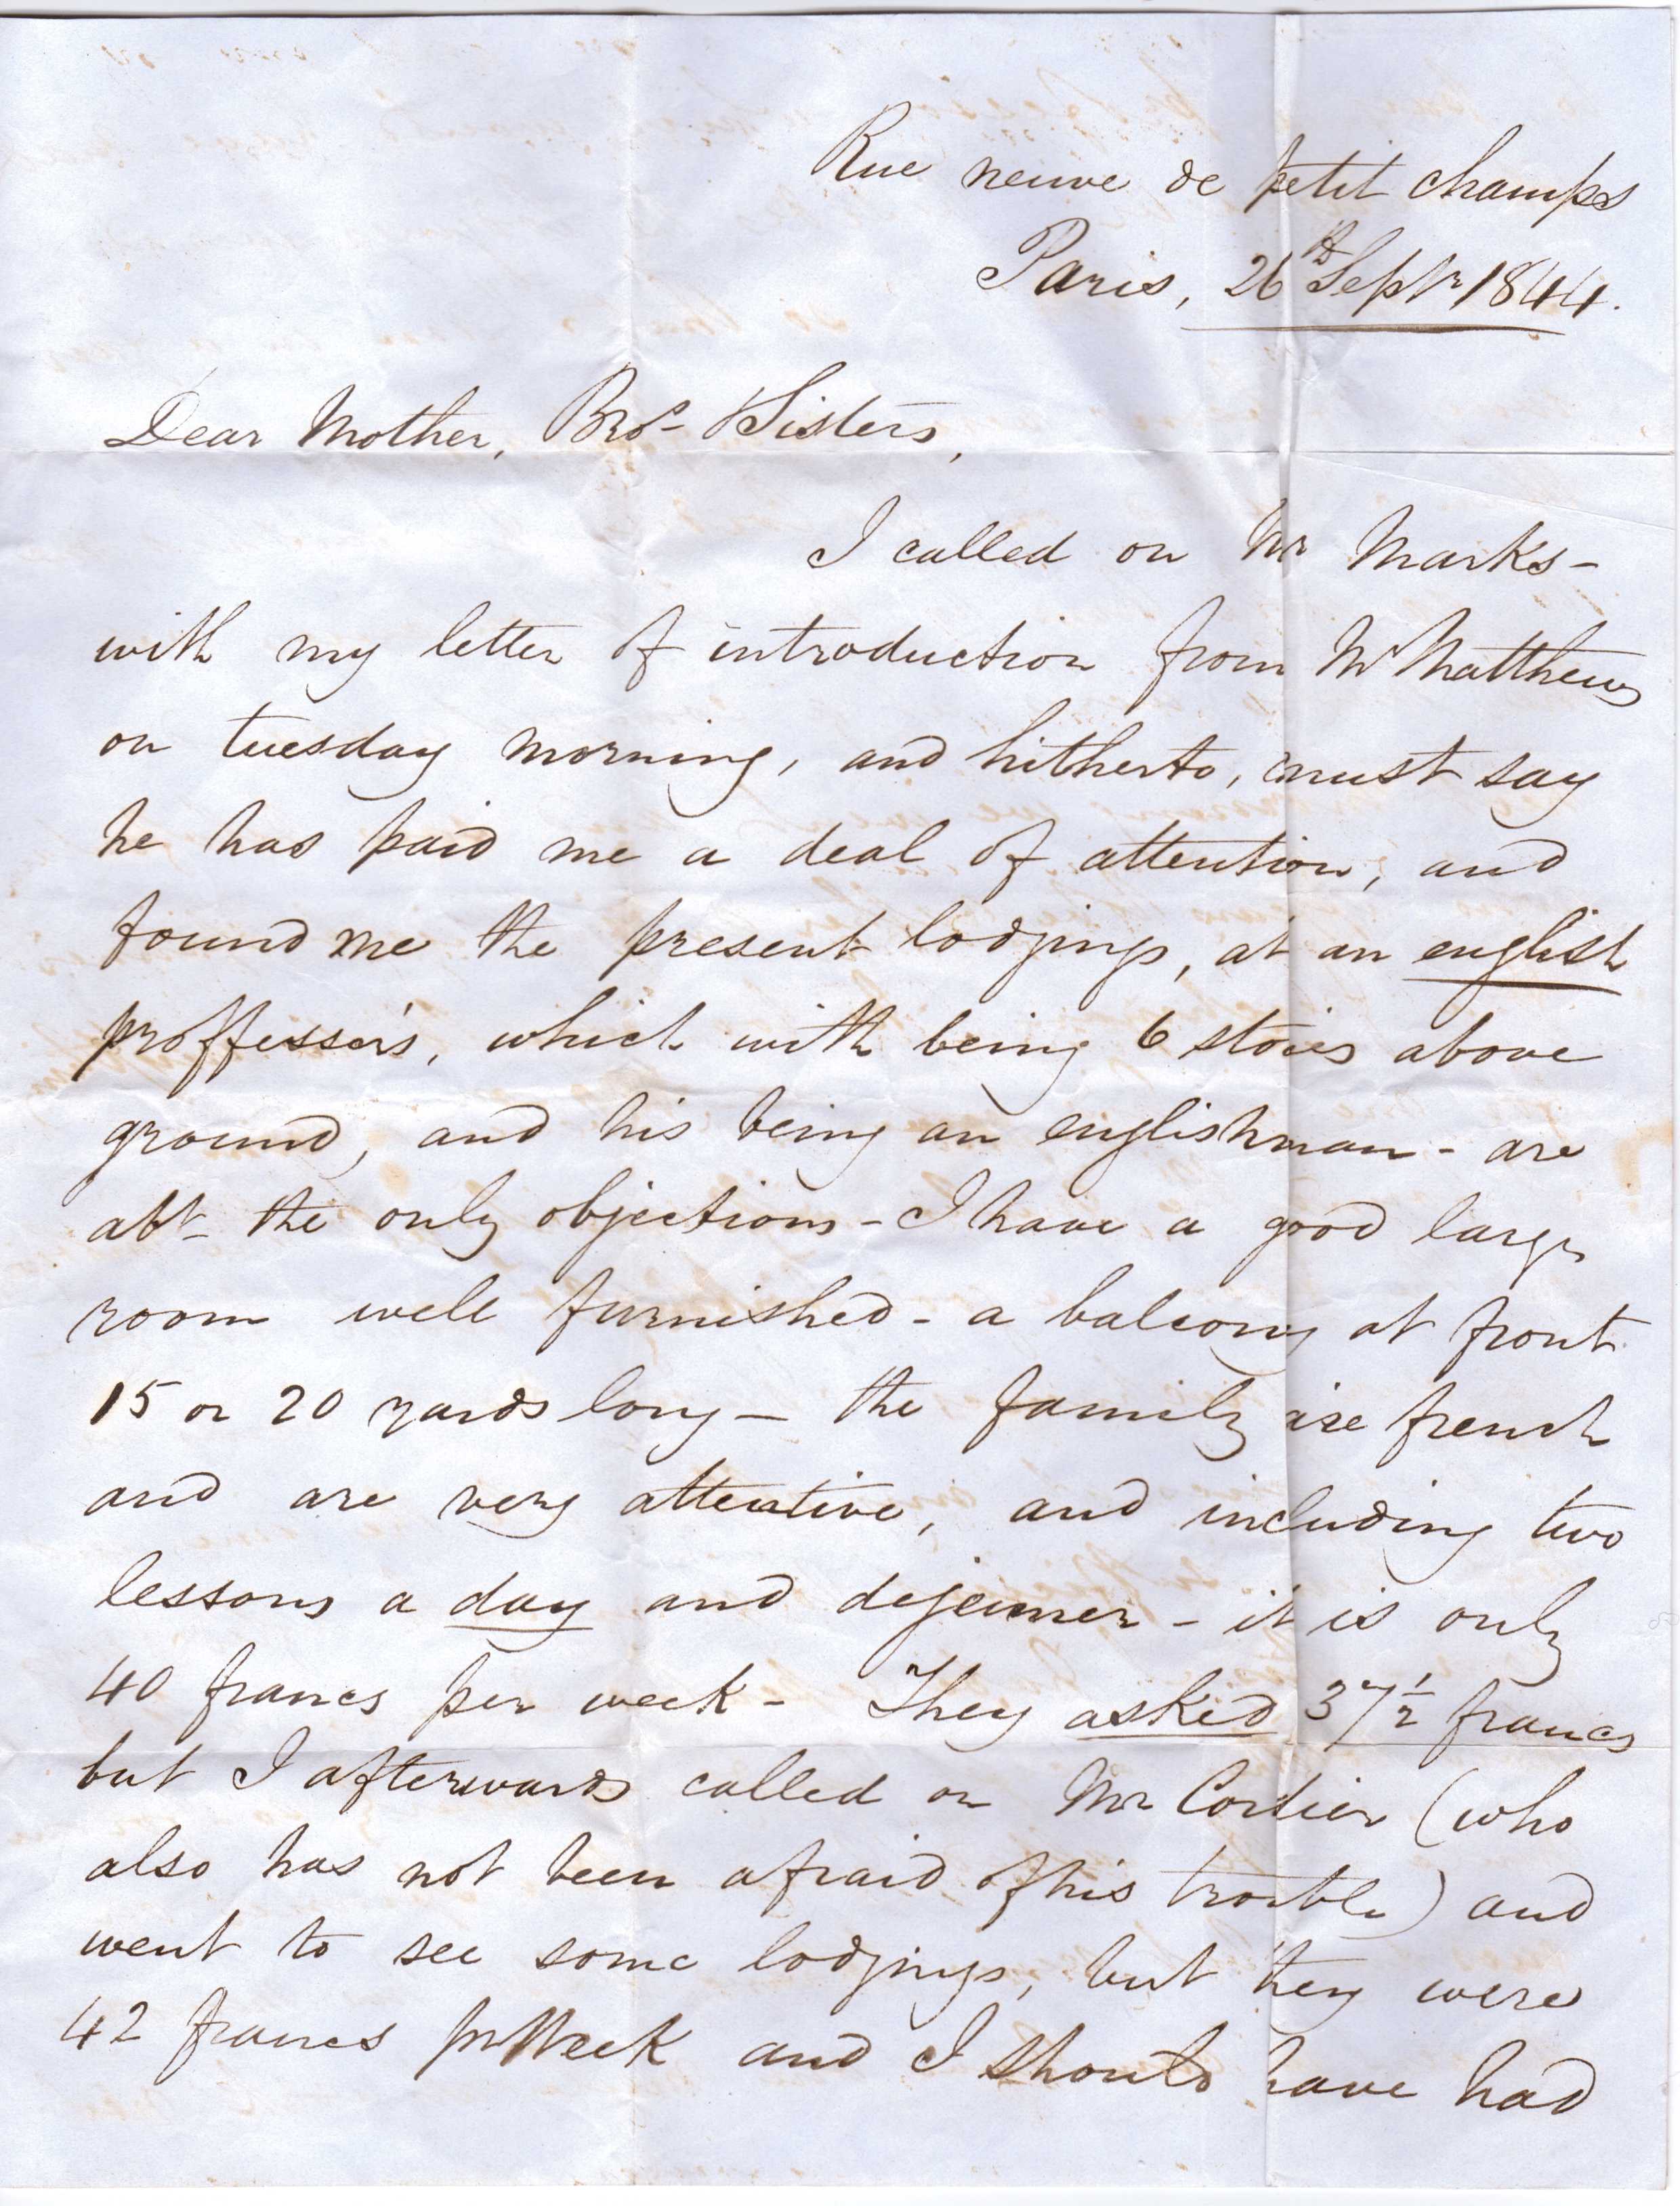 Rue neuve de petit champs
Paris, 26th Septr 1844.
Dear Mother, Bros & Sisters,
I called on Mr Marks -
with my letter of introduction from Mr Matthews
on tuesday morning, and hitherto, must say
he has paid me a deal of attention, and
found me the present lodgings, at an english
proffessor's, which with being 6 stories above
ground, and his being an englishman - are
abt the only objections - I have a good large
room well furnished - a balcony at front
15 or 20 yards long - the family are french
and are very attentive, and including two
lessons a day and dejeuner - it is only
40 francs per week - They asked 37½ francs
but I afterwards called on Mr Cordier (who
also has not been afraid of his trouble) and
went to see some lodgings, but they were
42 francs pr Week and I should have had